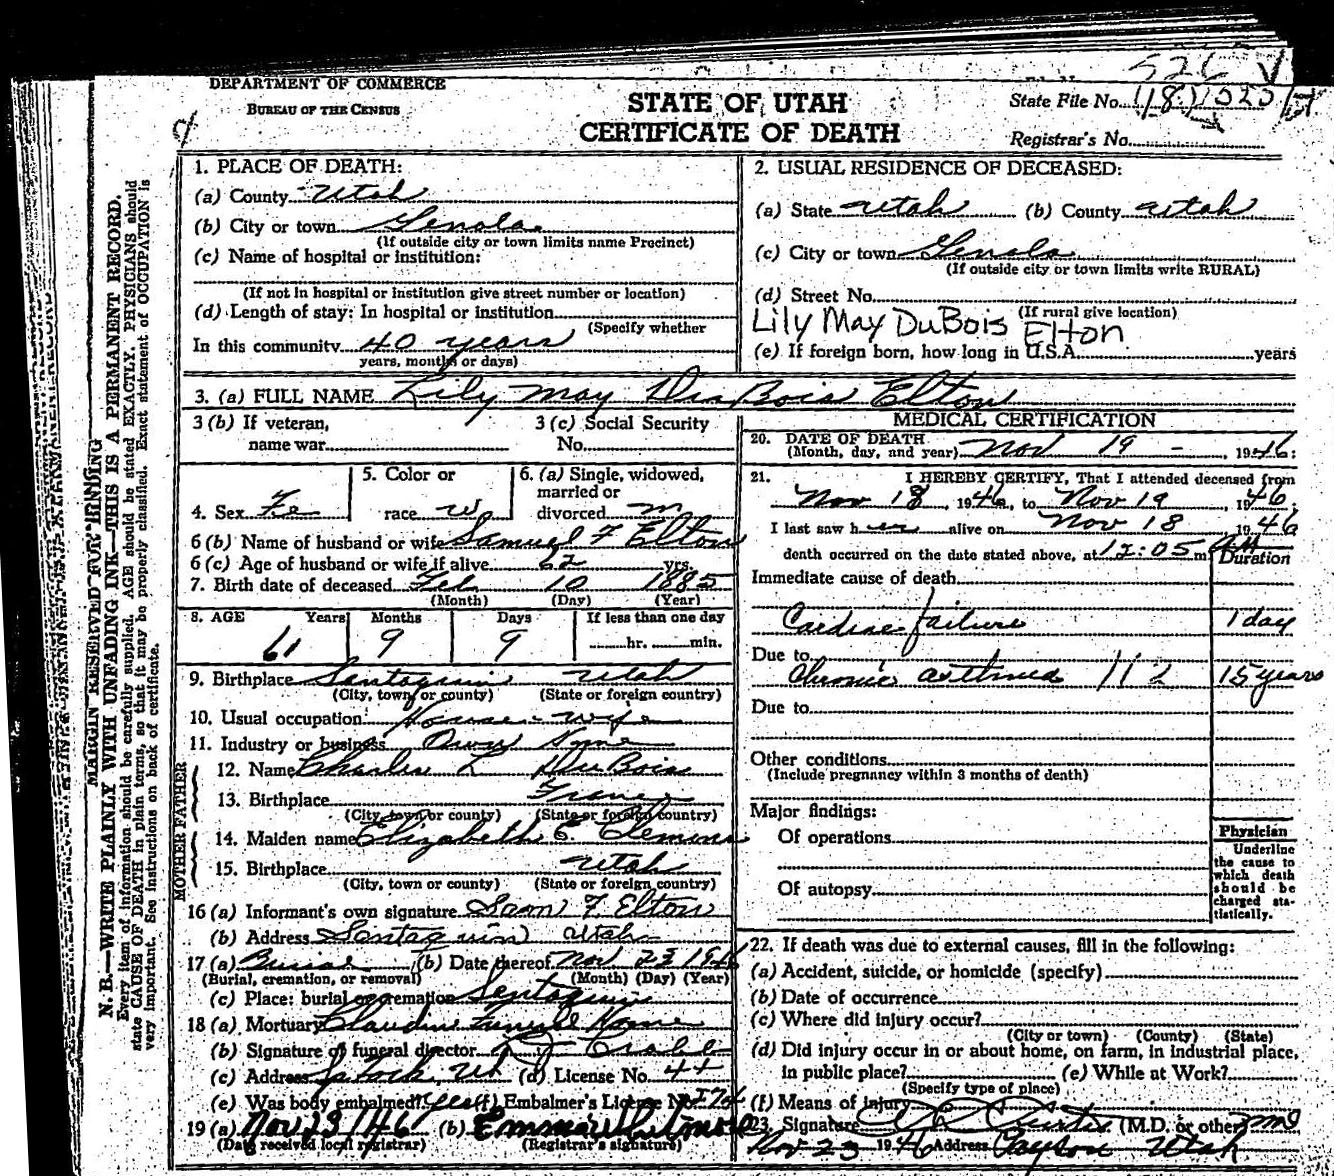 526 V
DEPARTMENT OF COMMERCE
BUREAU OF THE CENSUS
STATE OF UTAH
CERTIFICATE OF DEATH
State File No.
Registrar's No.
1. PLACE OF DEATH:
(a) County Utah
(b) City or town Genola
(If outside city or town limits name Precinct)
(c) Name of hospital or institution:
(If not in hospital or institution give street number or location)
(d) Length of stay: In hospital or institution
(Specify whether
In this community 40 years
years, months or days)
2. USUAL RESIDENCE OF DECEASED:
(a) State Utah (b) County Utah
(c) City or town Genola
(If outside city or town limits write RURAL)
(d) Street No.
(If rural give location)
Lily May DuBois Elton
(e) If foreign born, how long in U.S.A. years
3. (a) FULL NAME Lily May DuBois Elton
3 (b) If veteran, name war
3 (c) Social Security No.
4. Sex Fe
5. Color or race W
6. (a) Single, widowed, married or divorced m
6 (b) Name of husband or wife Samuel F Elton
6 (c) Age of husband or wife if alive 62 yrs.
7. Birth date of deceased Feb 10 1885
(Month) (Day) (Year)
8. AGE Years Months Days If less than one day
61 9 9 hr. min.
9. Birthplace Santaquin Utah
(City, town or county) (State or foreign country)
10. Usual occupation House-wife
11. Industry or business Own Home
FATHER
12. Name Charles L DuBois
13. Birthplace France
(City, town or county) (State or foreign country)
MOTHER
14. Maiden name Elizabeth E. Clemens
15. Birthplace Utah
(City, town or county) (State or foreign country)
16 (a) Informant's own signature Sam F. Elton
(b) Address Santaquin Utah
17 (a) Burial (b) Date thereof Nov 23 1946
(Burial, cremation, or removal) (Month) (Day) (Year)
(c) Place: burial or cremation Santaquin
18 (a) Mortuary Claudin Funeral Home
(b) Signature of funeral director
(c) Address Ut (d) License No. 44
(e) Was body embalmed? yes (f) Embalmer's License No.
19 (a) Nov 23 1946 (b)
(Date received local registrar) (Registrar's signature)
MEDICAL CERTIFICATION
20. DATE OF DEATH
(Month, day, and year) Nov 19 - , 1946:
21. I HEREBY CERTIFY, That I attended deceased from
Nov 18, 1946, to Nov 19, 1946
I last saw her alive on Nov 18 1946
death occurred on the date stated above, at 12:05 m AM
Duration
Immediate cause of death
Cardiac failure 1 day
Due to
Chronic asthma 112 15 years
Due to
Other conditions
(Include pregnancy within 3 months of death)
Major findings:
Of operations
Of autopsy
Physician
Underline the cause to which death should be charged statistically.
22. If death was due to external causes, fill in the following:
(a) Accident, suicide, or homicide (specify)
(b) Date of occurrence
(c) Where did injury occur?
(City or town) (County) (State)
(d) Did injury occur in or about home, on farm, in industrial place, in public place?
(Specify type of place)
(e) While at Work?
(f) Means of injury
23. Signature (M.D. or other) MD
Nov 23 1946 Address Payson Utah
MARGIN RESERVED FOR BINDING
N. B.—WRITE PLAINLY WITH UNFADING INK—THIS IS A PERMANENT RECORD.
Every item of information should be carefully supplied. AGE should be stated EXACTLY. PHYSICIANS should
state CAUSE OF DEATH in plain terms, so that it may be properly classified. Exact statement of OCCUPATION is
very important. See instructions on back of certificate.